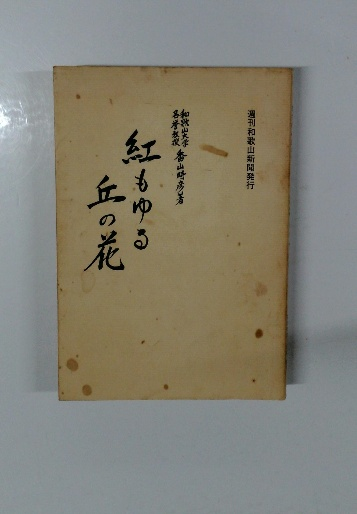 週刊和歌山新聞発行
和歌山大学
名誉教授 香山時彦著
紅もゆる
丘の花